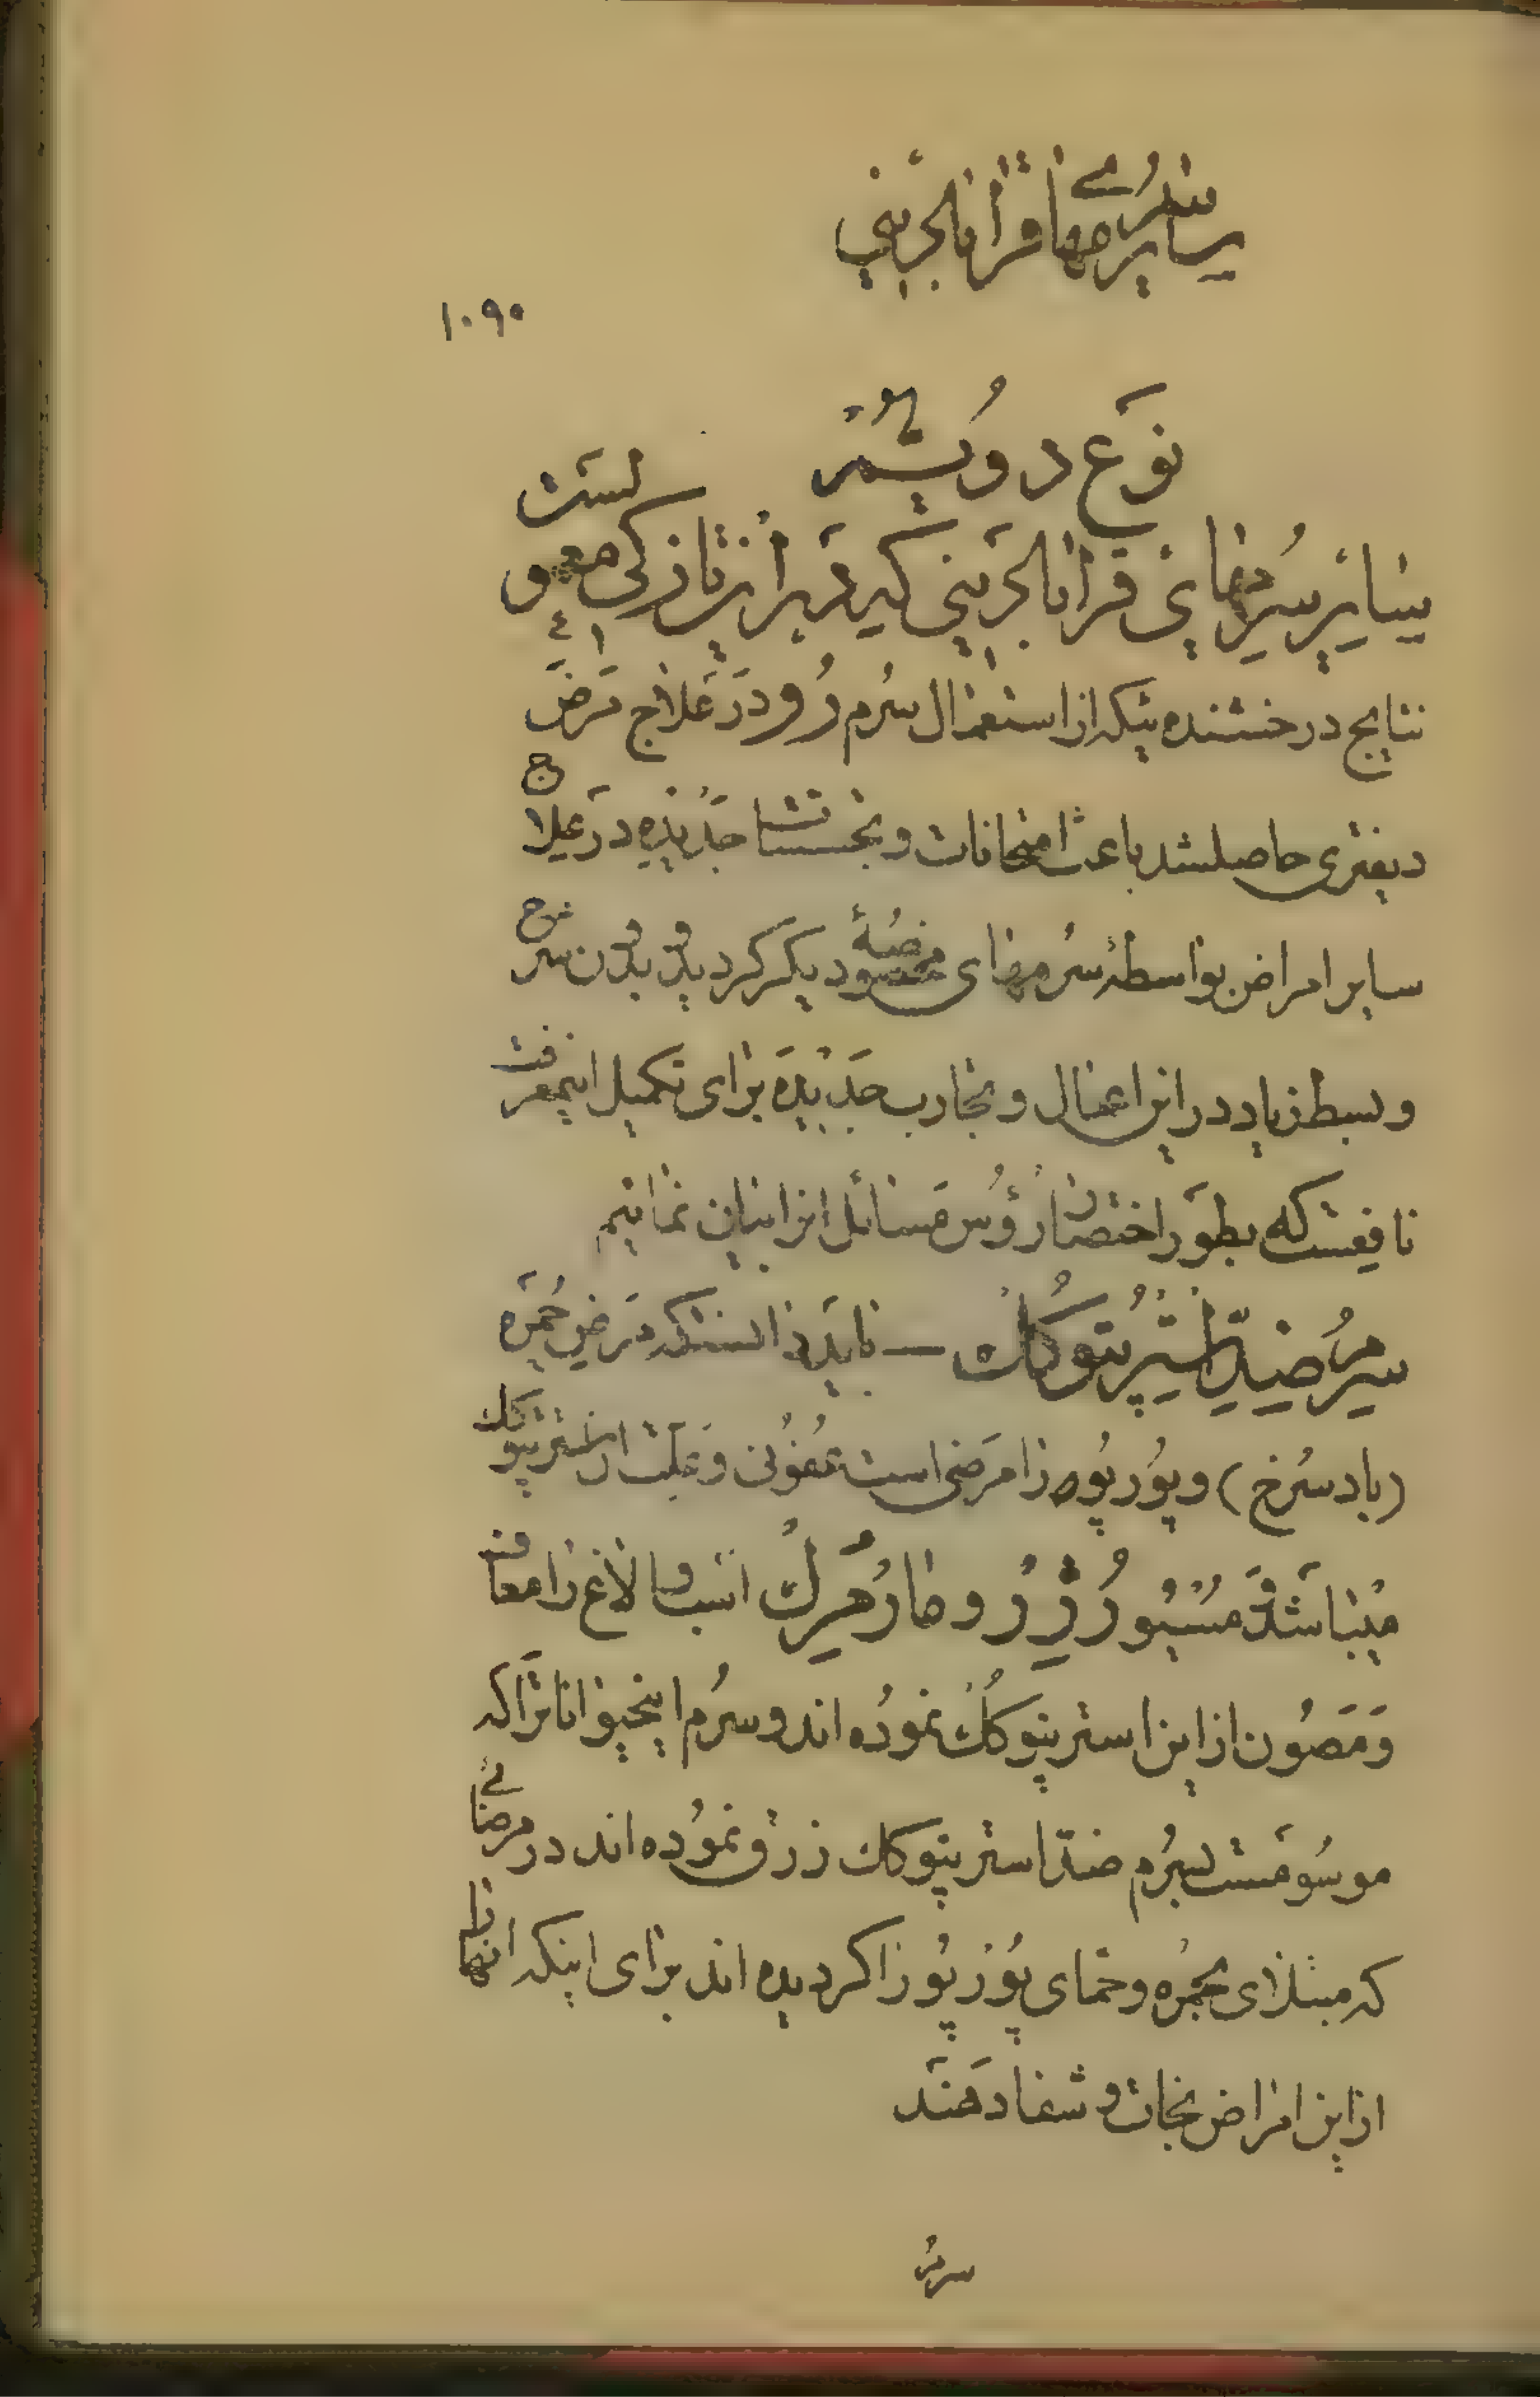 سایر سرمهای قرانالجزینی
۱۰۹۰
نوع دویم
سایر سرمهای قرانالجزینی که در این تازکی معمولست
نتایج درخشنده ئیکه از استعمال سرم رو در علاج مرض
دیفتری حاصلشد باعث امتحانات و تجسسات جدیده در علاج
سایر امراض بواسطهٔ سرمهای مخصوصهٔ دیگر کردید و بدون شرح
و بسط زیاد در این اعمال و تجارب جدیده برای تکمیل اینمعرفت
نافعست که بطور اختصار رؤس مسائل انرا بیان نمائیم
سرم ضد استرپتوکک — باید دانست که مرض حمره
(باد سرخ) و پورپوه را مرضی است عفونی و علت ان استرپتوکک
میباشد و مسیو رژر و مارمرک اسب و الاغ را معاف
و مصون از این استرپتوکک نموده اند و سرم اینحیوانات را که
موسومست بسرم ضد استرپتوکک زرق نموده اند در مرضائی
که مبتلای بحمره و حمای پورپورا کردیده اند برای اینکه انها را
از این امراض نجات و شفا دهند
سرم